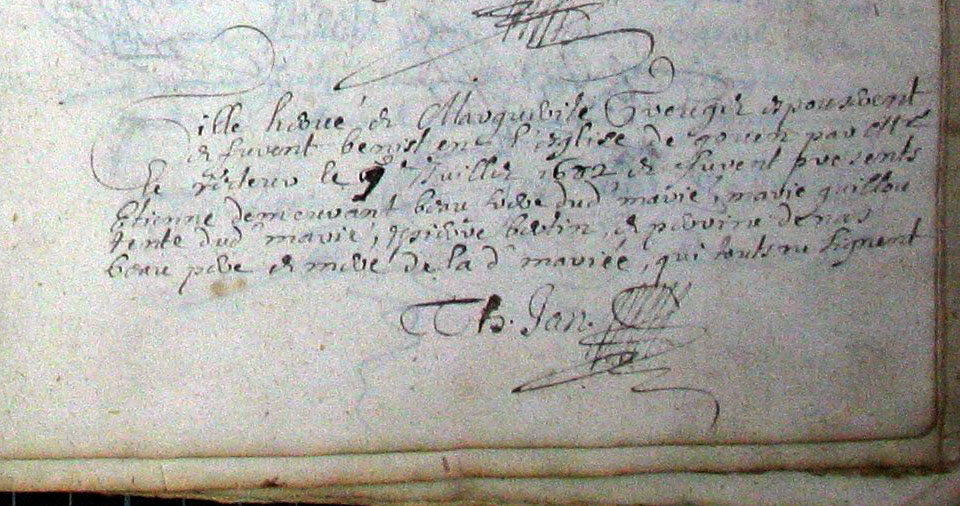 ille herué et Marguerite Guerger epouserent
et furent benist en l'eglise de gouen par
le recteur le 9e Juillet 1682 et furent presents
Etienne demeurant beau frere dud marié, marie guillou
tente dud marié,
beau pere et mere de la d mariée, qui touts ne signent
Th. Jan.